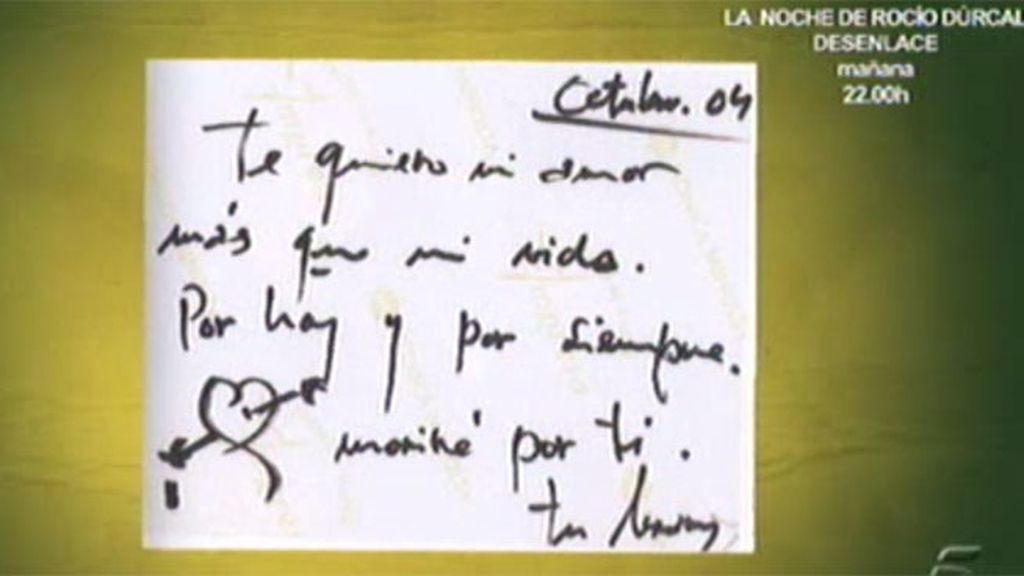 LA NOCHE DE ROCÍO DÚRCAL
DESENLACE
mañana
22.00h
Octubre. 04
Te quiero mi amor
más que mi vida.
Por hoy y por siempre.
moriré por ti.
tu